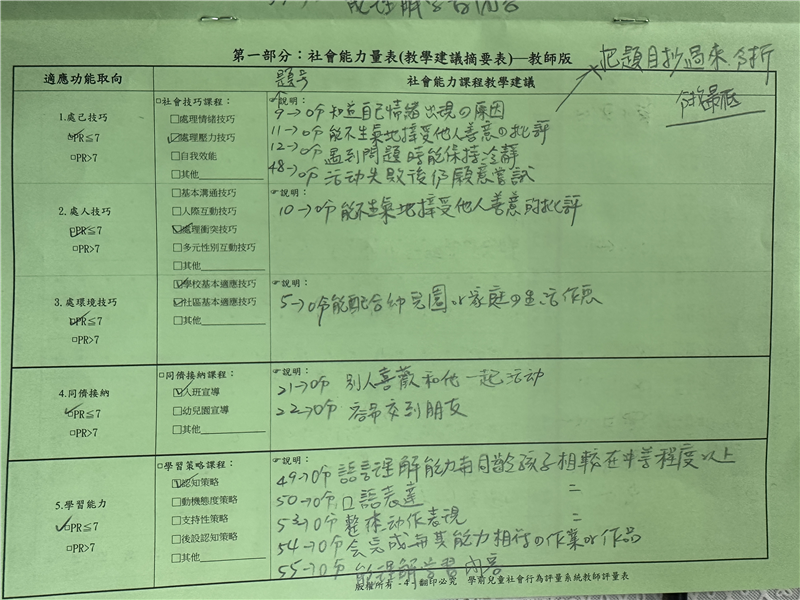 第一部分：社會能力量表(教學建議摘要表)—教師版
把題目抄過來分析
適應功能取向
題号
社會能力課程教學建議
1.處己技巧
□PR≦7
□PR>7
□社會技巧課程：
□處理情緒技巧
□處理壓力技巧
□自我效能
□其他
☞說明：
9→0分 知道自己情緒出現の原因
11→0分 能不生氣地接受他人善意の批評
12→0分 遇到問題時能保持冷靜
48→0分 活动失敗後仍願意嘗試
2.處人技巧
□PR≦7
□PR>7
□基本溝通技巧
□人際互動技巧
□處理衝突技巧
□多元性別互動技巧
□其他
☞說明：
10→0分 能不生氣地接受他人善意的批評
3.處環境技巧
□PR≦7
□PR>7
□學校基本適應技巧
□社區基本適應技巧
□其他
☞說明：
5→0分 能配合幼兒園or家庭の生活作息
4.同儕接納
□PR≦7
□PR>7
□同儕接納課程：
□入班宣導
□幼兒園宣導
□其他
☞說明：
21→0分 別人喜歡和他一起活动
22→0分 容易交到朋友
5.學習能力
□PR≦7
□PR>7
□學習策略課程：
□認知策略
□動機態度策略
□支持性策略
□後設認知策略
□其他
☞說明：
49→0分 語言理解能力與同齡孩子相較在中等程度以上
50→0分 口語表達 =
53→0分 整体动作表現 =
54→0分 会完成與其能力相符の作業or作品
55→0分 能理解學習內容
版權所有 - 4 - 翻印必究 學前兒童社會行為評量系統教師評量表